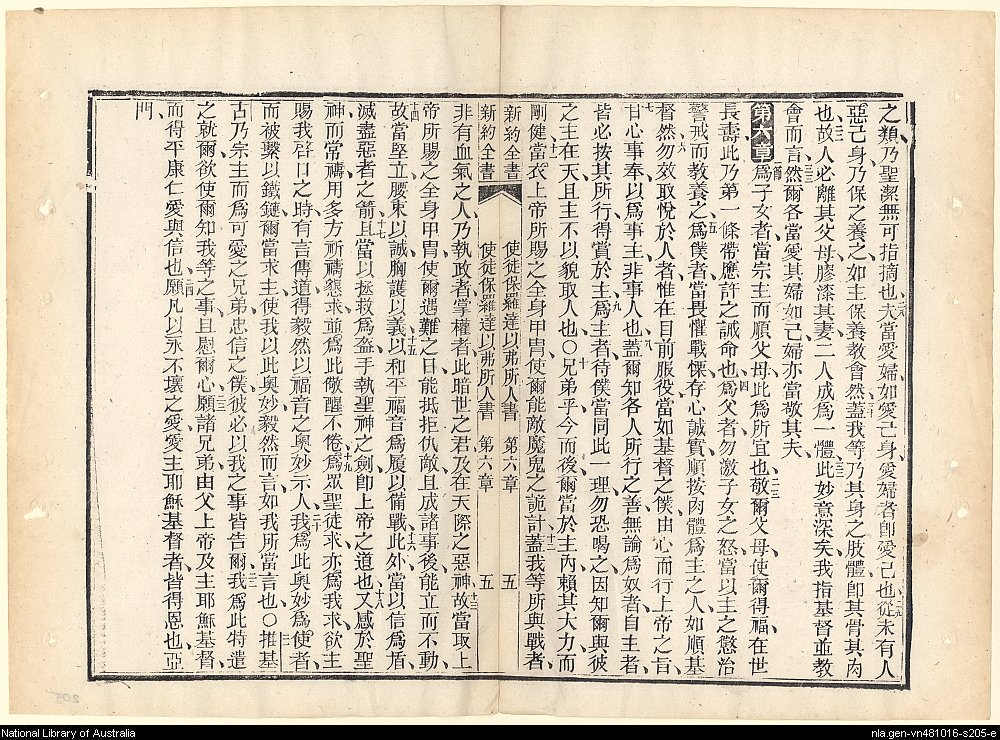 之類乃聖潔無可指摘也夫當愛婦如愛己身愛婦者卽愛己也從未有人
惡己身乃保之養之如主保養教會然蓋我等乃其身之肢體卽其骨其肉
也故人必離其父母膠漆其妻二人成爲一體此妙意深矣我指基督並教
會而言然爾各當愛其婦如己婦亦當敬其夫
第六章爲子女者當宗主而順父母此爲所宜也敬爾父母使爾得福在世
長壽此乃第一條帶應許之誡命也爲父者勿激子女之怒當以主之懲治
警戒而教養之爲僕者當畏懼戰慄存心誠實順按肉體爲主之人如順基
督然勿效取悅於人者惟在目前服役當如基督之僕由心而行上帝之旨
甘心事奉以爲事主非事人也蓋爾知各人所行之善無論爲奴者自主者
皆必按其所行得賞於主爲主者待僕當同此一理勿恐喝之因知爾與彼
之主在天且主不以貌取人也〇兄弟乎今而後爾當於主內賴其大力而
剛健當衣上帝所賜之全身甲冑使爾能敵魔鬼之詭計蓋我等所與戰者
新約全書 使徒保羅達以弗所人書 第六章 五
新約全書 使徒保羅達以弗所人書 第六章 五
非有血氣之人乃執政者掌權者此暗世之君及在天際之惡神故當取上
帝所賜之全身甲冑使爾遇難之日能抵拒仇敵且成諸事後能立而不動
故當堅立腰束以誠胸護以義以和平福音爲履以備戰此外當以信爲盾
滅盡惡者之箭且當以拯救爲盔手執聖神之劍卽上帝之道也又感於聖
神而常禱用多方祈禱懇求並爲此儆醒不倦爲眾聖徒求亦爲我求欲主
賜我啓口之時有言傳道得毅然以福音之奧妙示人我爲此奧妙爲使者
而被繫以鐵鏈爾當求主使我以此奧妙毅然而言如我所當言也〇推基
古乃宗主而爲可愛之兄弟忠信之僕彼必以我之事皆告爾我爲此特遣
之就爾欲使爾知我等之事且慰爾心願諸兄弟由父上帝及主耶穌基督
而得平康仁愛與信也願凡以永不壞之愛愛主耶穌基督者皆得恩也亞
門
National Library of Australia
nla.gen-vn481016-s205-e